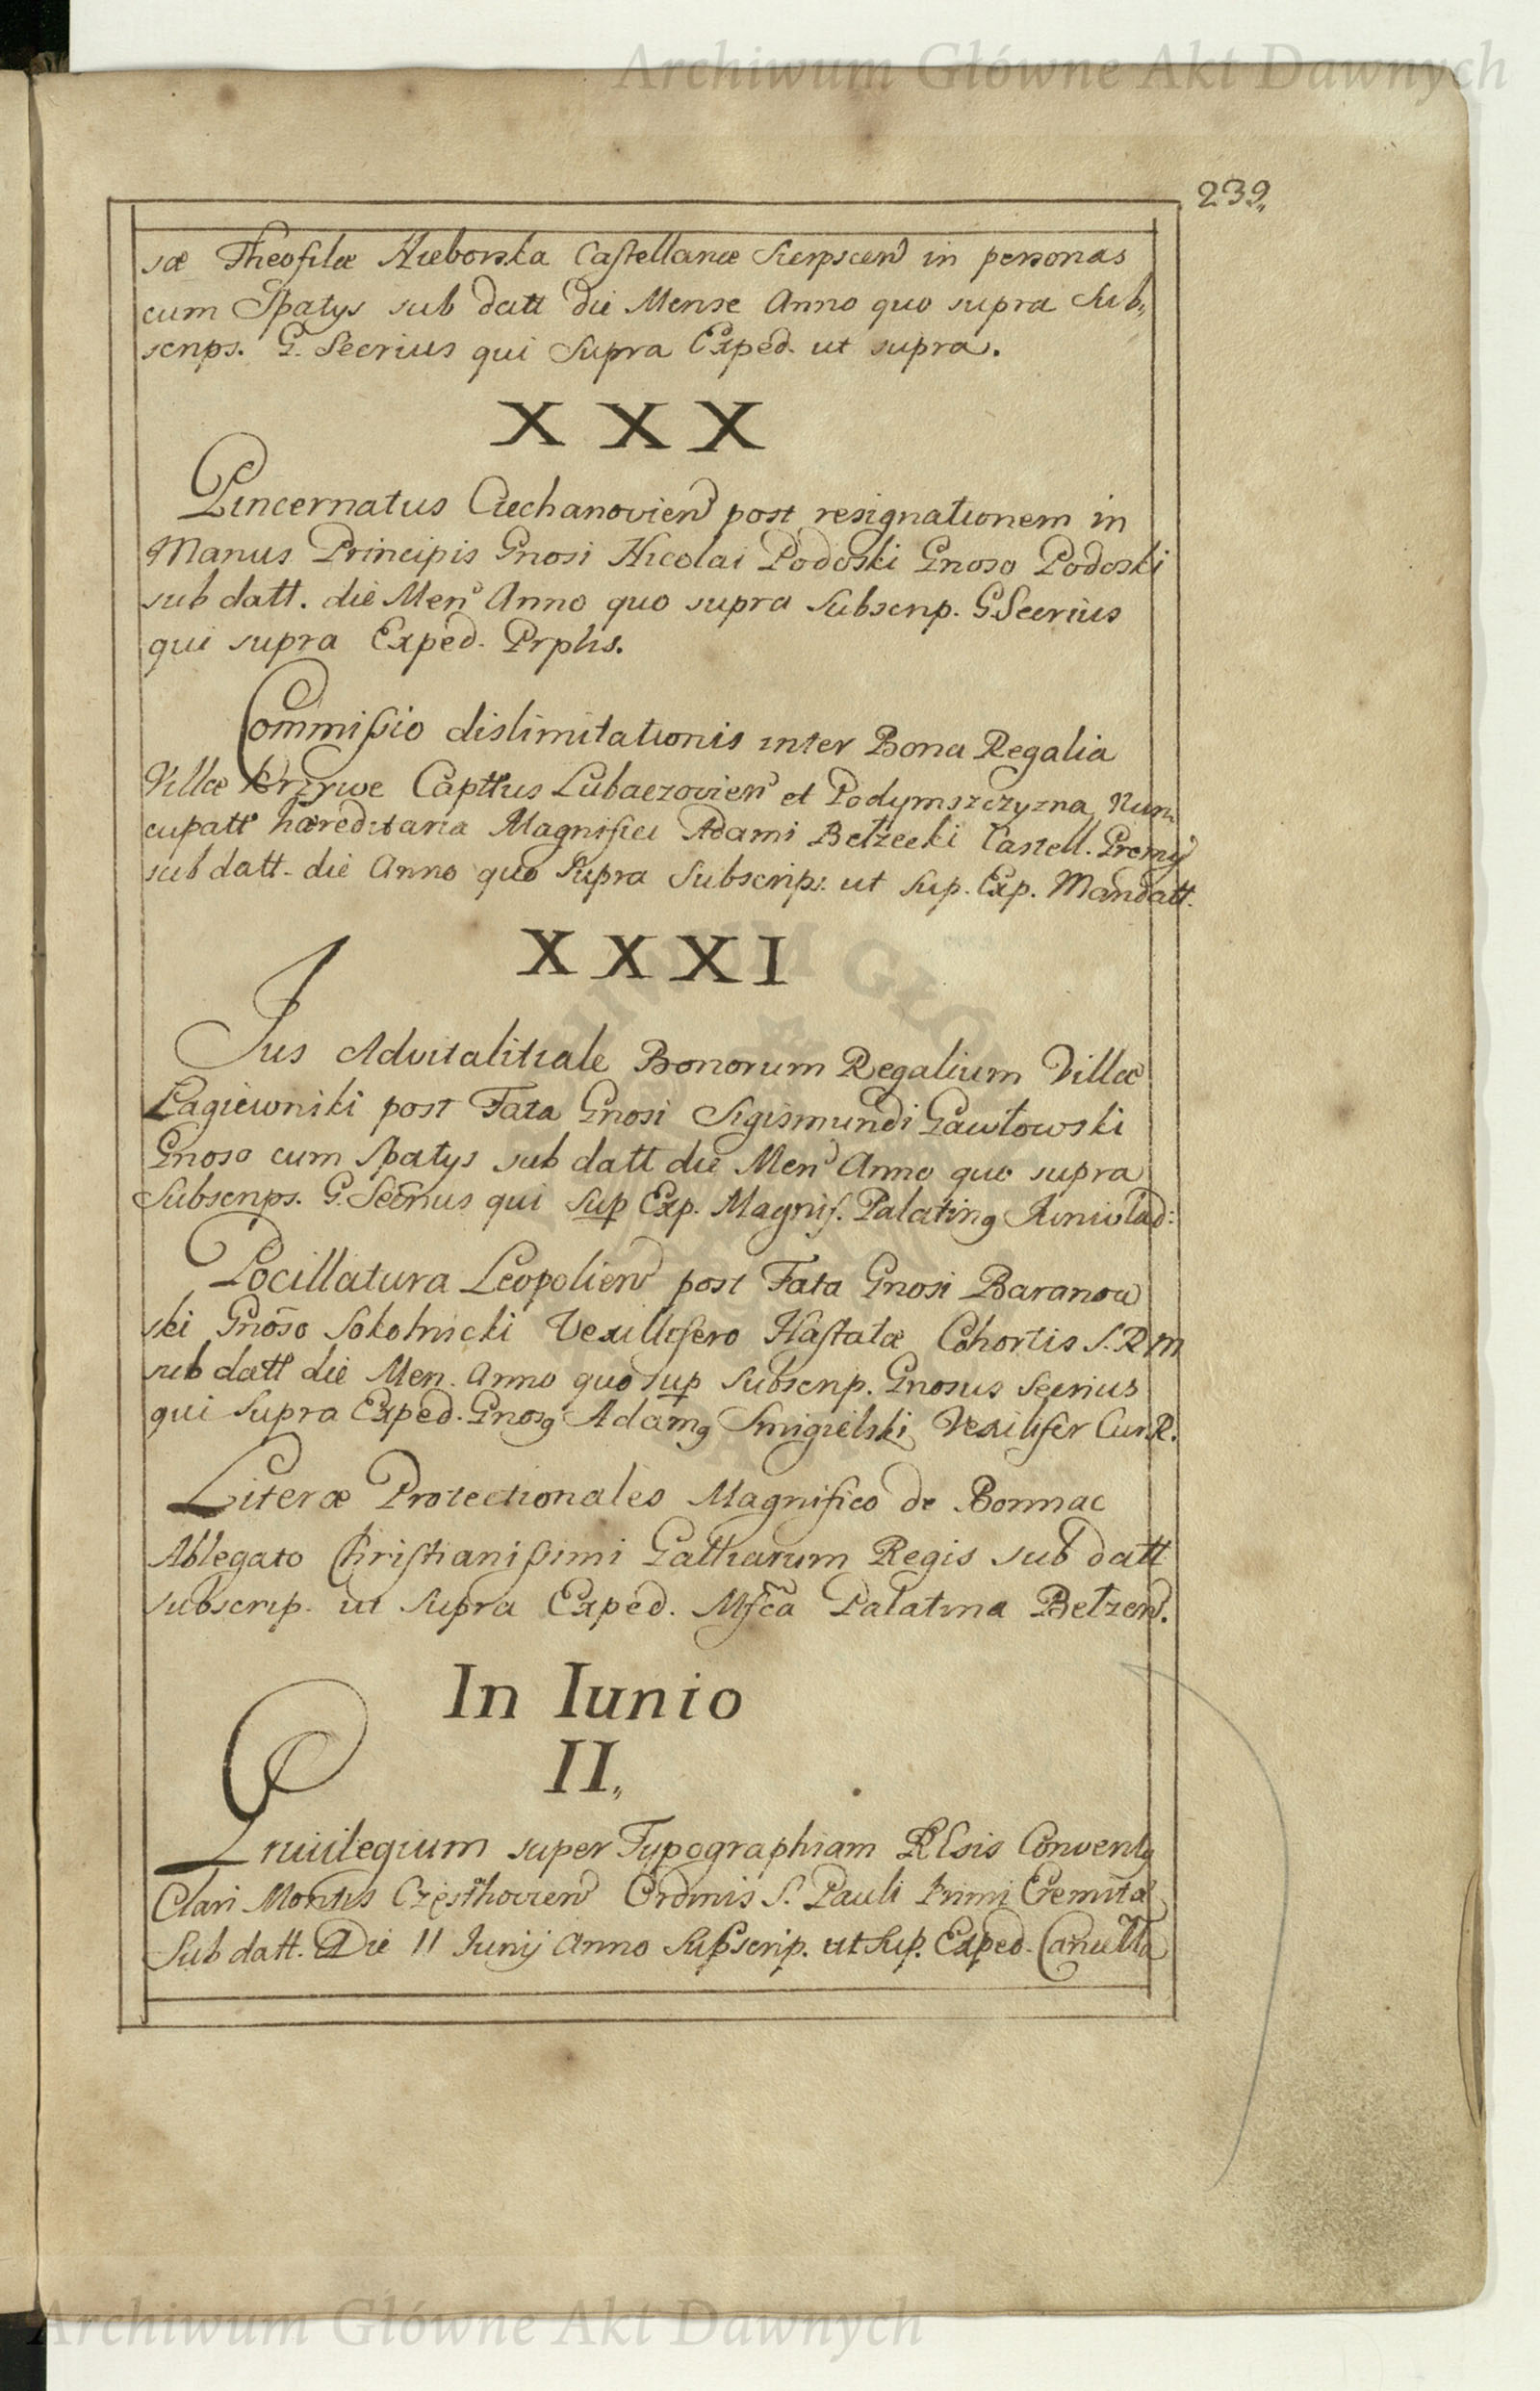 Archiwum Główne Akt Dawnych
239.
sæ Theofilæ Nieborska Castellanæ Sierpscen in personas
cum Spatys sub datt die Mense Anno quo supra Sub„
scrips. G. Secrius qui Supra Exped. ut supra.
XXX
Pincernatus Ciechanovien post resignationem in
Manus Principis Gnosi Nicolai Podoski Gnoso Podoski
sub datt. die Men Anno quo supra Subscrip. G Secrius
qui supra Exped. Prphs.
Commissio dislimitationis inter Bona Regalia
Villæ Krzywe Capttus Lubaczovien et Podymszczyzna Nun„
cupatt hæreditaria Magnifici Adami Bełzecki Castell. Premy
sub datt. die Anno quo Supra Subscrips: ut Sup. Exp. Mandatt.
XXXI
Jus Advitalitiale Bonorum Regalium Villæ
Łagiewniki post Fata Gnosi Sigismundi Gawłowski
Gnoso cum Spatys sub datt die Men Anno quo supra
Subscrips. G. Secrius qui Sup Exp. Magnif. Palating Iuniwlad:
Pocillatura Leopolien post Fata Gnosi Baranow
ski Gnoso Sokolnicki Vexillifero Hastatæ Cohortis S. R M
sub datt die Men. Anno quo sup Subscrip. Gnosus Secrius
qui Supra Exped. Gnosg Adamg Smigielski Vexilifer Cur. R.
Literæ Protectionales Magnifico de Bonnac
Ablegato Christianissimi Galliarum Regis sub datt
subscrip. ut Supra Exped. Mfca Palatina Bełzen.
In Iunio
II„
Privilegium super Typographiam RLsis Conventg
Clari Montis Częsthovien Ordinis S. Pauli Primi Eremitæ
Sub datt. Die 11 Junij Anno Supscrip. ut Sup. Exped. Cancella
Archiwum Główne Akt Dawnych